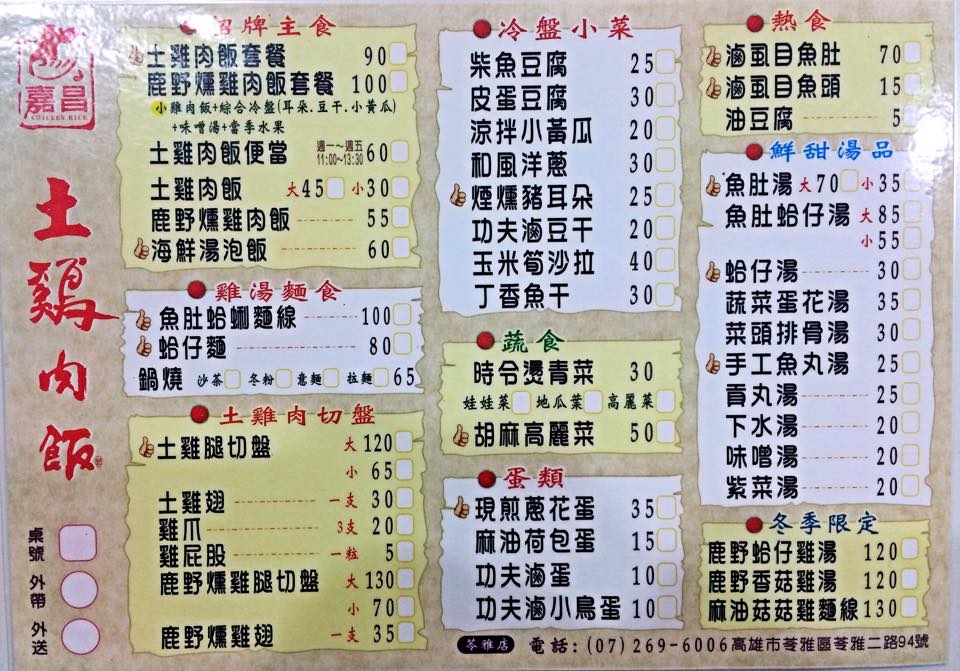 嘉昌
CHICKEN RICE
土鷄肉飯
桌號
外帶
外送
招牌主食
土雞肉飯套餐 90
鹿野燻雞肉飯套餐 100
小雞肉飯+綜合冷盤(耳朵.豆干.小黃瓜)
+味噌湯+當季水果
土雞肉飯便當 週一~週五 11:00~13:30 60
土雞肉飯 大45 小30
鹿野燻雞肉飯 55
海鮮湯泡飯 60
雞湯麵食
魚肚蛤蜊麵線 100
蛤仔麵 80
鍋燒 沙茶 冬粉 意麵 拉麵 65
土雞肉切盤
土雞腿切盤 大 120
小 65
土雞翅 一支 30
雞爪 3支 20
雞屁股 一粒 5
鹿野燻雞腿切盤 大 130
小 70
鹿野燻雞翅 一支 35
冷盤小菜
柴魚豆腐 25
皮蛋豆腐 30
涼拌小黃瓜 20
和風洋蔥 30
煙燻豬耳朵 25
功夫滷豆干 20
玉米筍沙拉 40
丁香魚干 30
蔬食
時令燙青菜 30
娃娃菜 地瓜葉 高麗菜
胡麻高麗菜 50
蛋類
現煎蔥花蛋 35
麻油荷包蛋 15
功夫滷蛋 10
功夫滷小鳥蛋 10
熱食
滷虱目魚肚 70
滷虱目魚頭 15
油豆腐 5
鮮甜湯品
魚肚湯 大70 小35
魚肚蛤仔湯 大85
小55
蛤仔湯 30
蔬菜蛋花湯 35
菜頭排骨湯 30
手工魚丸湯 25
貢丸湯 25
下水湯 20
味噌湯 20
紫菜湯 20
冬季限定
鹿野蛤仔雞湯 120
鹿野香菇雞湯 120
麻油菇菇雞麵線 130
苓雅店 電話:(07)269-6006 高雄市苓雅區苓雅二路94號